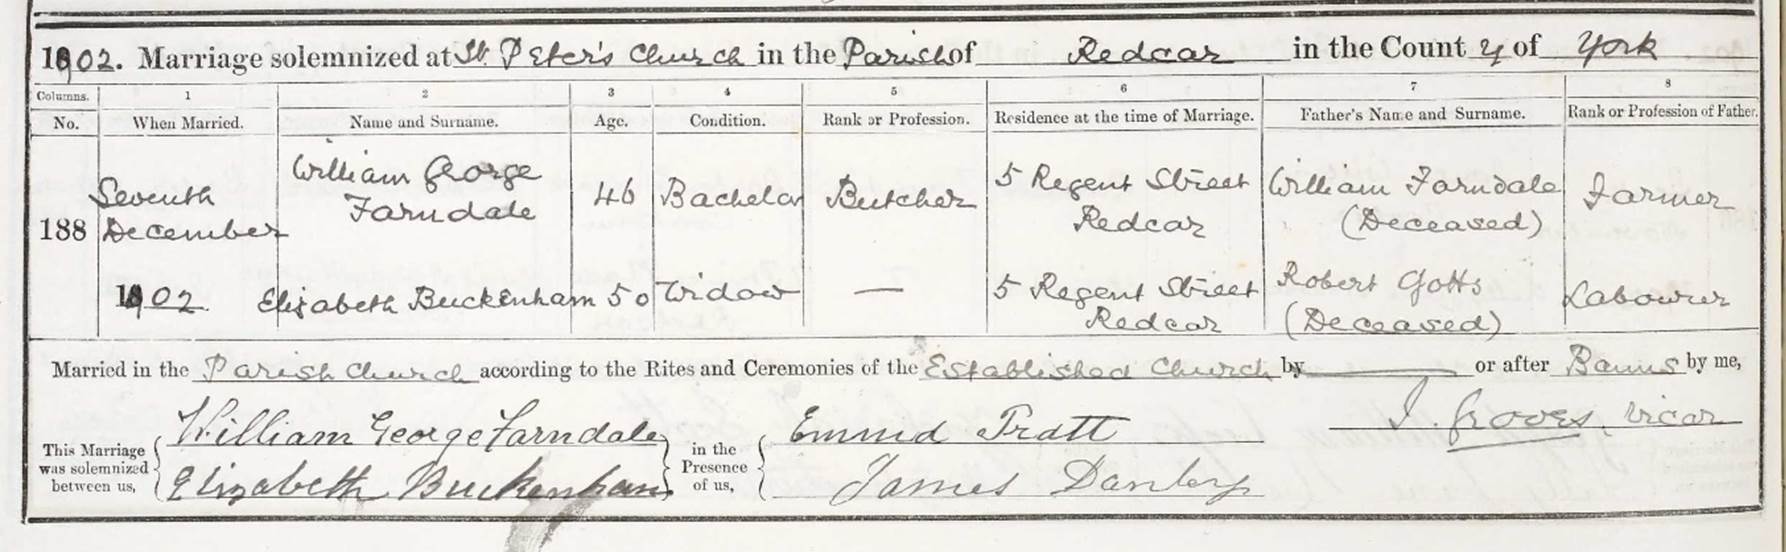 1902. Marriage solemnized at St. Peter's Church in the Parish of Redcar in the County of York
Columns. 1 2 3 4 5 6 7 8
No. When Married. Name and Surname. Age. Condition. Rank or Profession. Residence at the time of Marriage. Father's Name and Surname. Rank or Profession of Father.
188 Seventh December 1902. William George Farndale 46 Bachelor Butcher 5 Regent Street Redcar William Farndale (Deceased) Farmer
Elizabeth Buckenham 50 Widow — 5 Regent Street Redcar Robert Gotts (Deceased) Labourer
Married in the Parish Church according to the Rites and Ceremonies of the Established Church by or after Banns by me,
J. Groves. Vicar
This Marriage was solemnized between us, William George Farndale Elizabeth Buckenham in the Presence of us, Emma Pratt James Danby